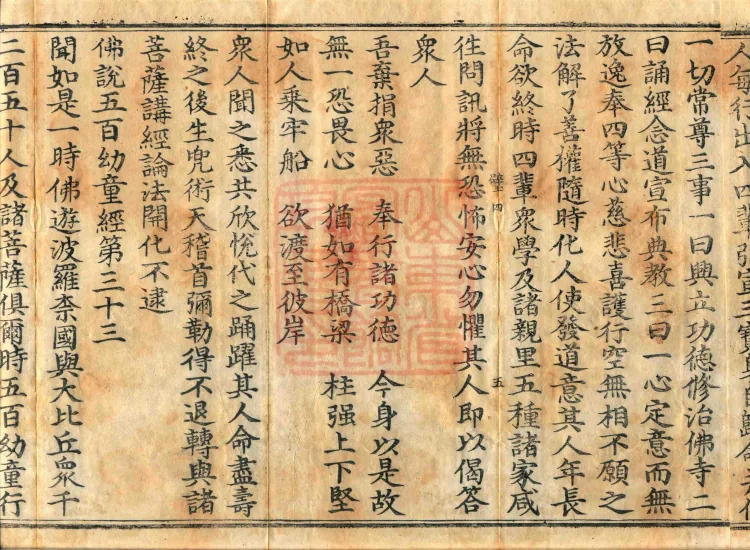 人每行出入四輩
一切常尊三事一曰興立功德修治佛寺二
曰誦經念道宣布典教三曰一心定意而無
放逸奉四等心慈悲喜護行空無相不願之
法解了善權隨時化人使發道意其人年長
命欲終時四輩衆學及諸親里五種諸家咸
徃問訊將無恐怖安心勿懼其人即以偈答
衆人
吾棄捐衆惡 奉行諸功德 今身以是故
無一恐畏心 猶如有橋梁 柱强上下堅
如人乘牢船 欲渡至彼岸
衆人聞之悉共欣恱代之踊躍其人命盡壽
終之後生兜術天稽首彌勒得不退轉與諸
菩薩講經論法開化不逮
佛說五百幼童經第三十三
聞如是一時佛遊波羅柰國與大比丘衆千
二百五十人及諸菩薩俱爾時五百幼童行
四
五